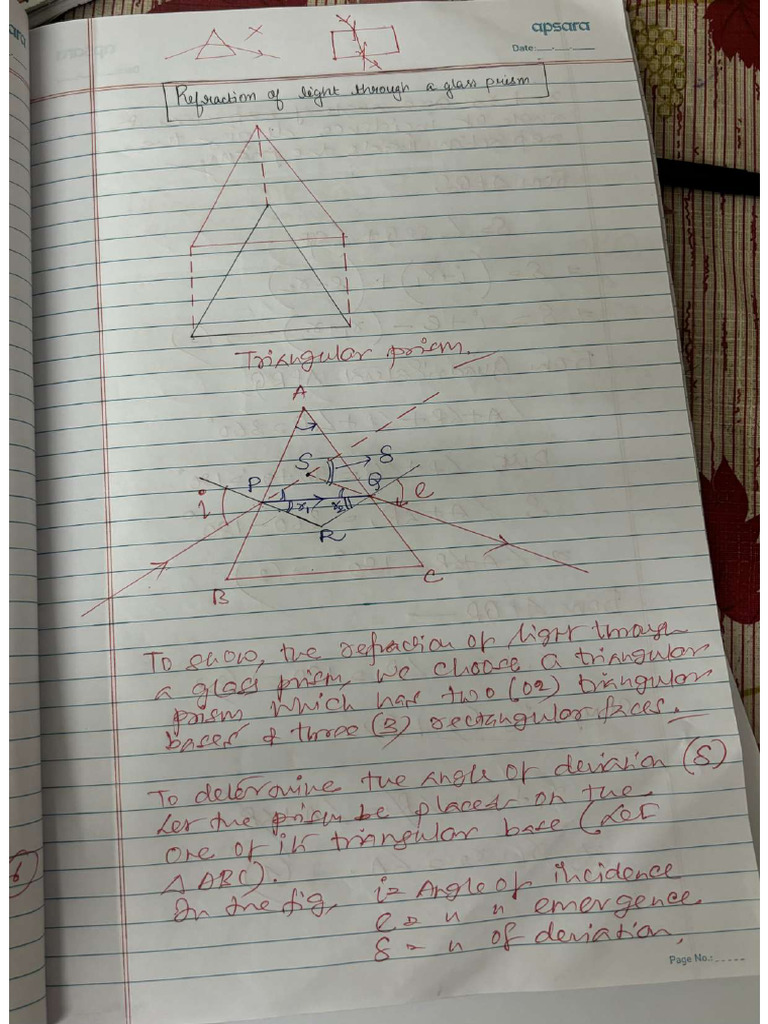 apsara
Date:
Refraction of light through a glass prism
Triangular prism.
A
S
δ
P
Q
i
r₁
r₂
e
R
B
C
To show, the refraction of light through
a glass prism, we choose a triangular
prism which has two (02) triangular
bases & three (3) rectangular faces.
To determine the angle of deviation (δ)
Let the prism be placed on the
one of its triangular base (Let
△ ABC).
In the fig, i = Angle of incidence
e = " " emergence.
δ = " of deviation,
6
Page No.: